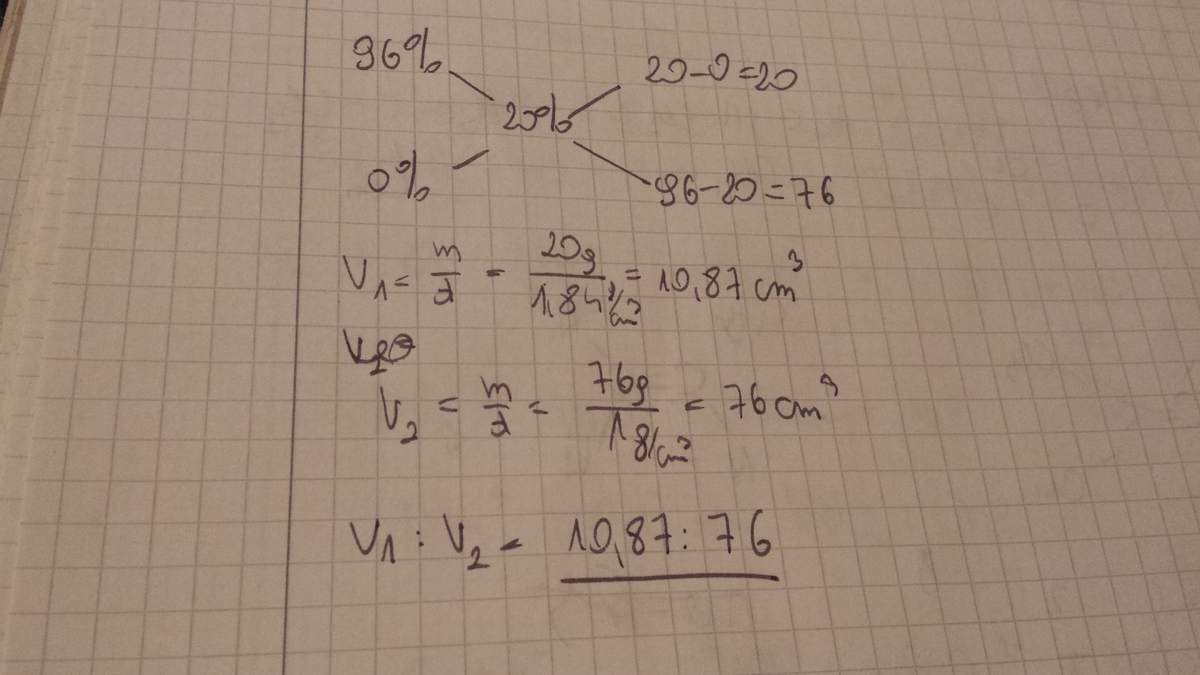 96%
20-0=20
20%
0%
96-20=76
V₁ = m/d = 20g / 1,84 g/cm³ = 10,87 cm³
V₂
V₂ = m/d = 76g / 1 g/cm³ = 76 cm³
V₁ : V₂ = 10,87 : 76